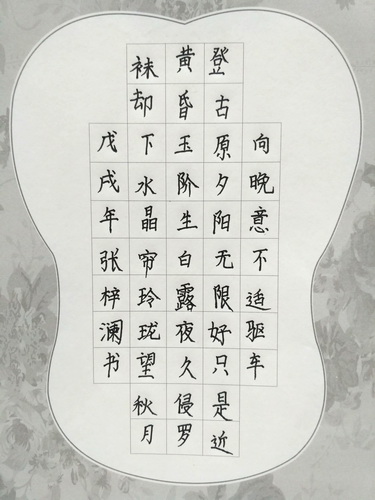 向晚意不适驱车
登古原夕阳无限好只是近
黄昏玉阶生白露夜久侵罗
袜却下水晶帘玲珑望秋月
戊戌年张梓澜书